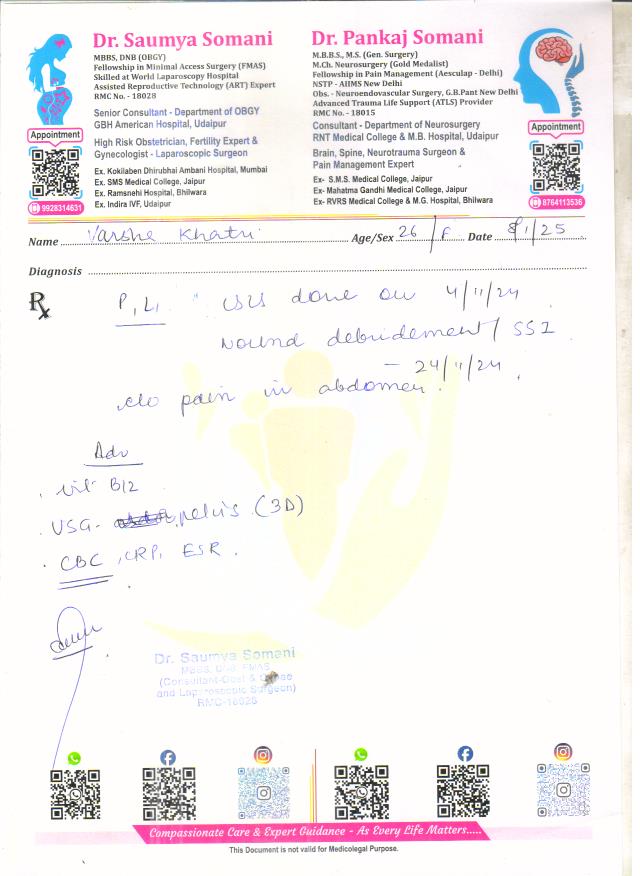 Dr. Saumya Somani
MBBS, DNB (OBGY)
Fellowship in Minimal Access Surgery (FMAS)
Skilled at World Laparoscopy Hospital
Assisted Reproductive Technology (ART) Expert
RMC No. - 18028
Senior Consultant - Department of OBGY
GBH American Hospital, Udaipur
High Risk Obstetrician, Fertility Expert &
Gynecologist - Laparoscopic Surgeon
Ex. Kokilaben Dhirubhai Ambani Hospital, Mumbai
Ex. SMS Medical College, Jaipur
Ex. Ramsnehi Hospital, Bhilwara
Ex. Indira IVF, Udaipur
Appointment
9928314631
Dr. Pankaj Somani
M.B.B.S., M.S. (Gen. Surgery)
M.Ch. Neurosurgery (Gold Medalist)
Fellowship in Pain Management (Aesculap - Delhi)
NSTP - AIIMS New Delhi
Obs. - Neuroendovascular Surgery, G.B.Pant New Delhi
Advanced Trauma Life Support (ATLS) Provider
RMC No. - 18015
Consultant - Department of Neurosurgery
RNT Medical College & M.B. Hospital, Udaipur
Brain, Spine, Neurotrauma Surgeon &
Pain Management Expert
Ex- S.M.S. Medical College, Jaipur
Ex- Mahatma Gandhi Medical College, Jaipur
Ex- RVRS Medical College & M.G. Hospital, Bhilwara
Appointment
8764113536
Name Varsha Khatri Age/Sex 26/F Date 8/1/25
Diagnosis
Rx P1L1 done on 4/11/24
wound debridement / SSI
- 24/11/24
c/o pain in abdomen.
Adv
. Vit B12
. USG- pelvis (3D)
. CBC, CRP, ESR.
Dr. Saumya Somani
MBBS, DNB, FMAS
(Consultant-Obst & Gynae
and Laparoscopic Surgeon)
RMC-18028
Compassionate Care & Expert Guidance - As Every Life Matters.....
This Document is not valid for Medicolegal Purpose.